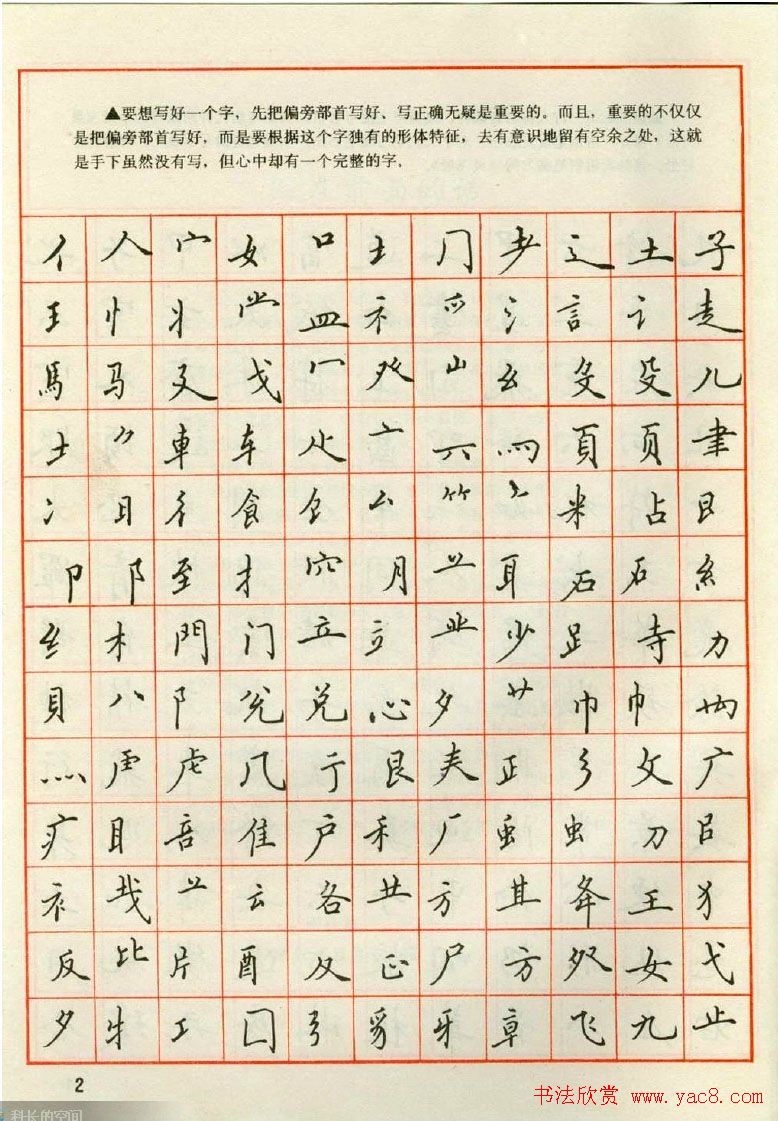 ▲要想写好一个字，先把偏旁部首写好、写正确无疑是重要的。而且，重要的不仅仅
是把偏旁部首写好，而是要根据这个字独有的形体特征，去有意识地留有空余之处，这就
是手下虽然没有写，但心中却有一个完整的字。
亻 人 宀 女 口 土 冂 耂 辶 土 子
王 忄 丬 龸 皿 礻 爫 氵 言 讠 走
馬 马 廴 戈 冖 癶 山 幺 殳 殳 儿
士 車 车 亠 六 罒 頁 页 聿
冫 日 彳 食 饣 米 占
卩 阝 至 扌 穴 月 耳 石 石 糹
纟 木 門 门 立 立 业 少 足 寺 力
貝 八 阝 兑 心 夕 艹 巾 巾
灬 虍 几 亍 艮 正 彡 攵 广
疒 目 咅 隹 户 禾 厂 虫 虫 刀 吕
衤 云 各 龷 方 其 夅 王 犭
反 比 片 酉 及 尸 方 女 弋
夕 牛 工 囗 弓 豸 牙 章 飞 九 止
2
书法欣赏 www.yac8.com
科长的空间